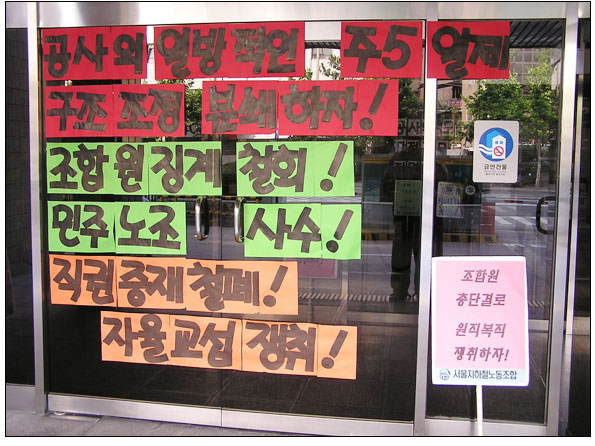 공사의 일방적인 주5일제
구조조정 분쇄하자!
조합원징계 철회!
민주노조 사수!
직권중재철폐!
자율교섭쟁취!
금연건물
조합원
총단결로
원직복직
쟁취하자!
서울지하철노동조합